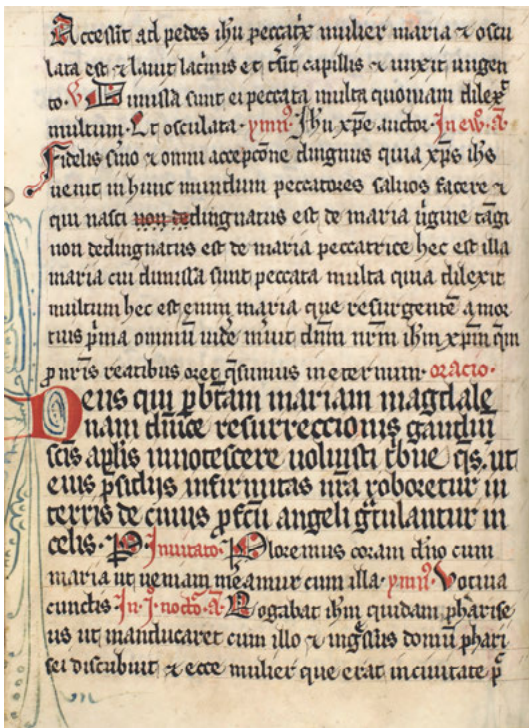 Accessit ad pedes ihu peccatᷓx mulier maria ⁊ oscu
lata est ⁊ lauit lac̓mis et t̓sit capillis ⁊ unxit ungen
to · V̓ Dimissa sunt ei peccata multa quoniam dilex̓
multum · Et osculata · ymn᷒ · Ihu xp̄e auctor · In ew̓ · a̅
Fidelis s̓mo ⁊ omni accepc̄one dingnus quia xp̄s ihs
uenit in hunc mundum peccatores saluos facere ⁊
qui nasci non dedingnatus est de maria uͥgine tāgi
non dedingnatus est de maria peccatrice hec est illa
maria cui dimissa sunt peccata multa quia dilexit
multum hec est enim maria que resurgentē a mor
tuis pͥma omniū uid̓e m̓uit dn̄m nr̄m ihm̄ xp̄m qm̄
ꝓ nr̄is reatibus oret q̄sumus in eternum · oracio ·
Deus qui ꝑ btām mariam magdale
nam dn̄ice resurreccionis gaudiū
sc̄is aplis innotescere uoluisti t̓bue qs̄ · ut
eius p̄sidiis infirmitas nr̄a roboretur in
terris de cuius ꝓfc̄u angeli gͣtulantur in
celis · P · Inuitato · Ploremus coram dn̄o cum
maria ut ueniam me̓amur cum illa · ymn᷒ · Votiua
cunctis In · j · nocto̓ · a̅ Rogabat ihm̄ quidam pharise
us ut manducaret cum illo ⁊ ing̓ssus domū phari
sei discubuit ⁊ ecce mulier que erat in ciuitate pͨ